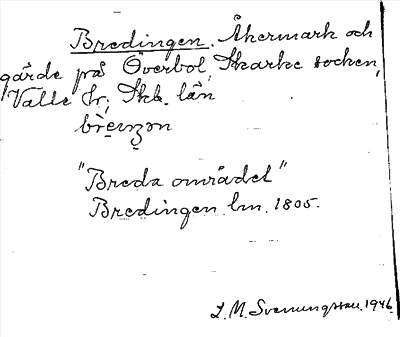 Bredingen. Åkermark och
gärde på Överbol, Skarke socken,
Valle hr; Skb. län
"Breda området"
Bredingen lm. 1805.
L. M. Svenungsson. 1946.